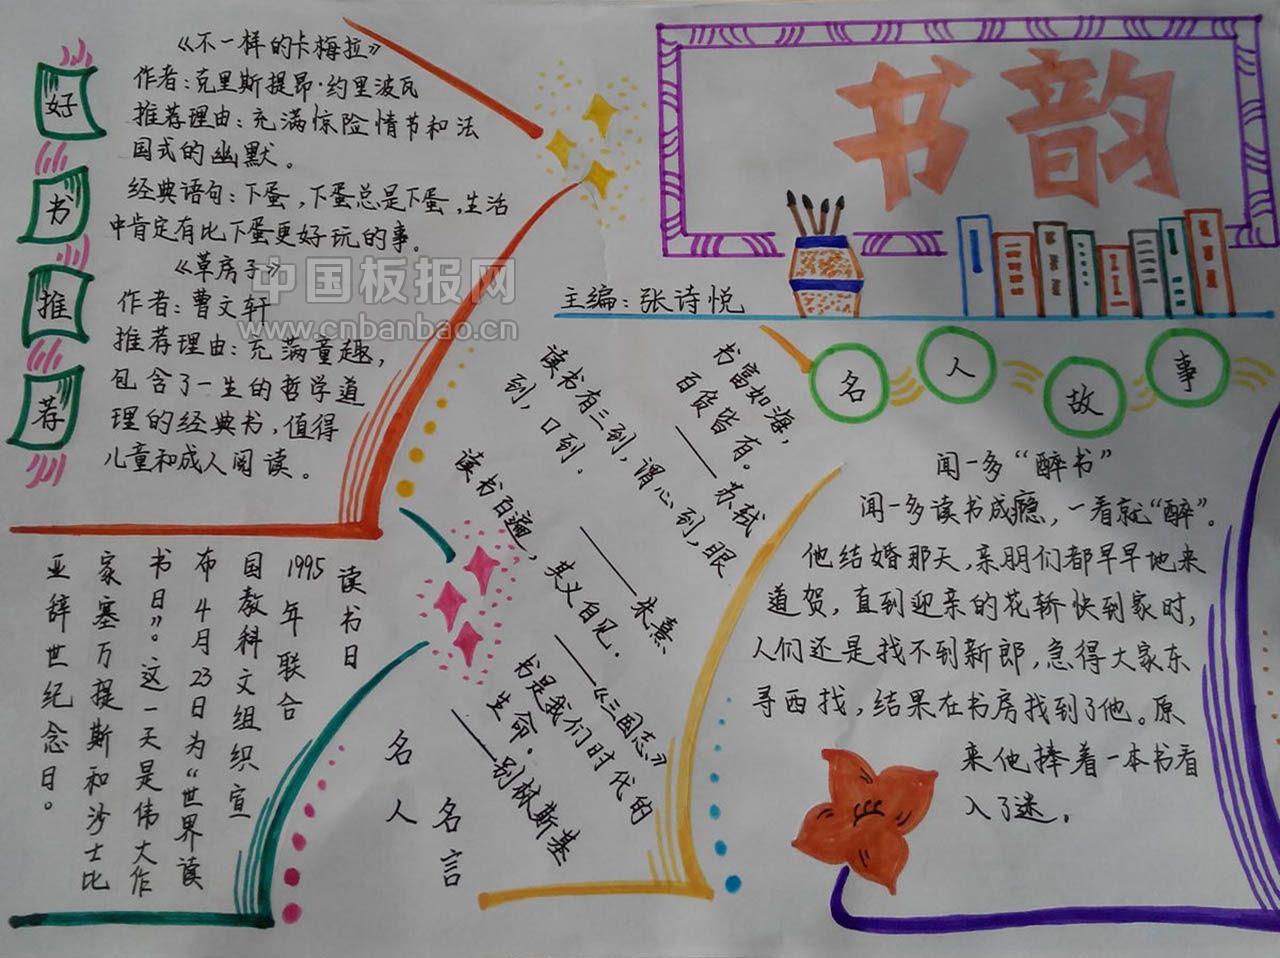 书韵
主编：张诗悦
好
书
推
荐
《不一样的卡梅拉》
作者：克里斯提昂·约里波瓦
推荐理由：充满惊险情节和法
国式的幽默。
经典语句：下蛋，下蛋总是下蛋，生活
中肯定有比下蛋更好玩的事。
《草房子》
作者：曹文轩
推荐理由：充满童趣，
包含了一生的哲学道
理的经典书，值得
儿童和成人阅读。
中国板报网
www.cnbanbao.cn
读书日
1995年联合
国教科文组织宣
布4月23日为“世界读
书日”。这一天是伟大作
家塞万提斯和沙士比
亚辞世纪念日。
名人
名言
书富如海，
百货皆有。
——苏轼
读书有三到，谓心到，眼
到，口到．
——朱熹
读书百遍，其义自见．
——《三国志》
书是我们时代的
生命．
——别林斯基
名
人
故
事
闻一多“醉书”
闻一多读书成瘾，一看就“醉”。
他结婚那天，亲朋们都早早地来
道贺，直到迎亲的花轿快到家时，
人们还是找不到新郎，急得大家东
寻西找，结果在书房找到了他。原
来他捧着一本书看
入了迷．